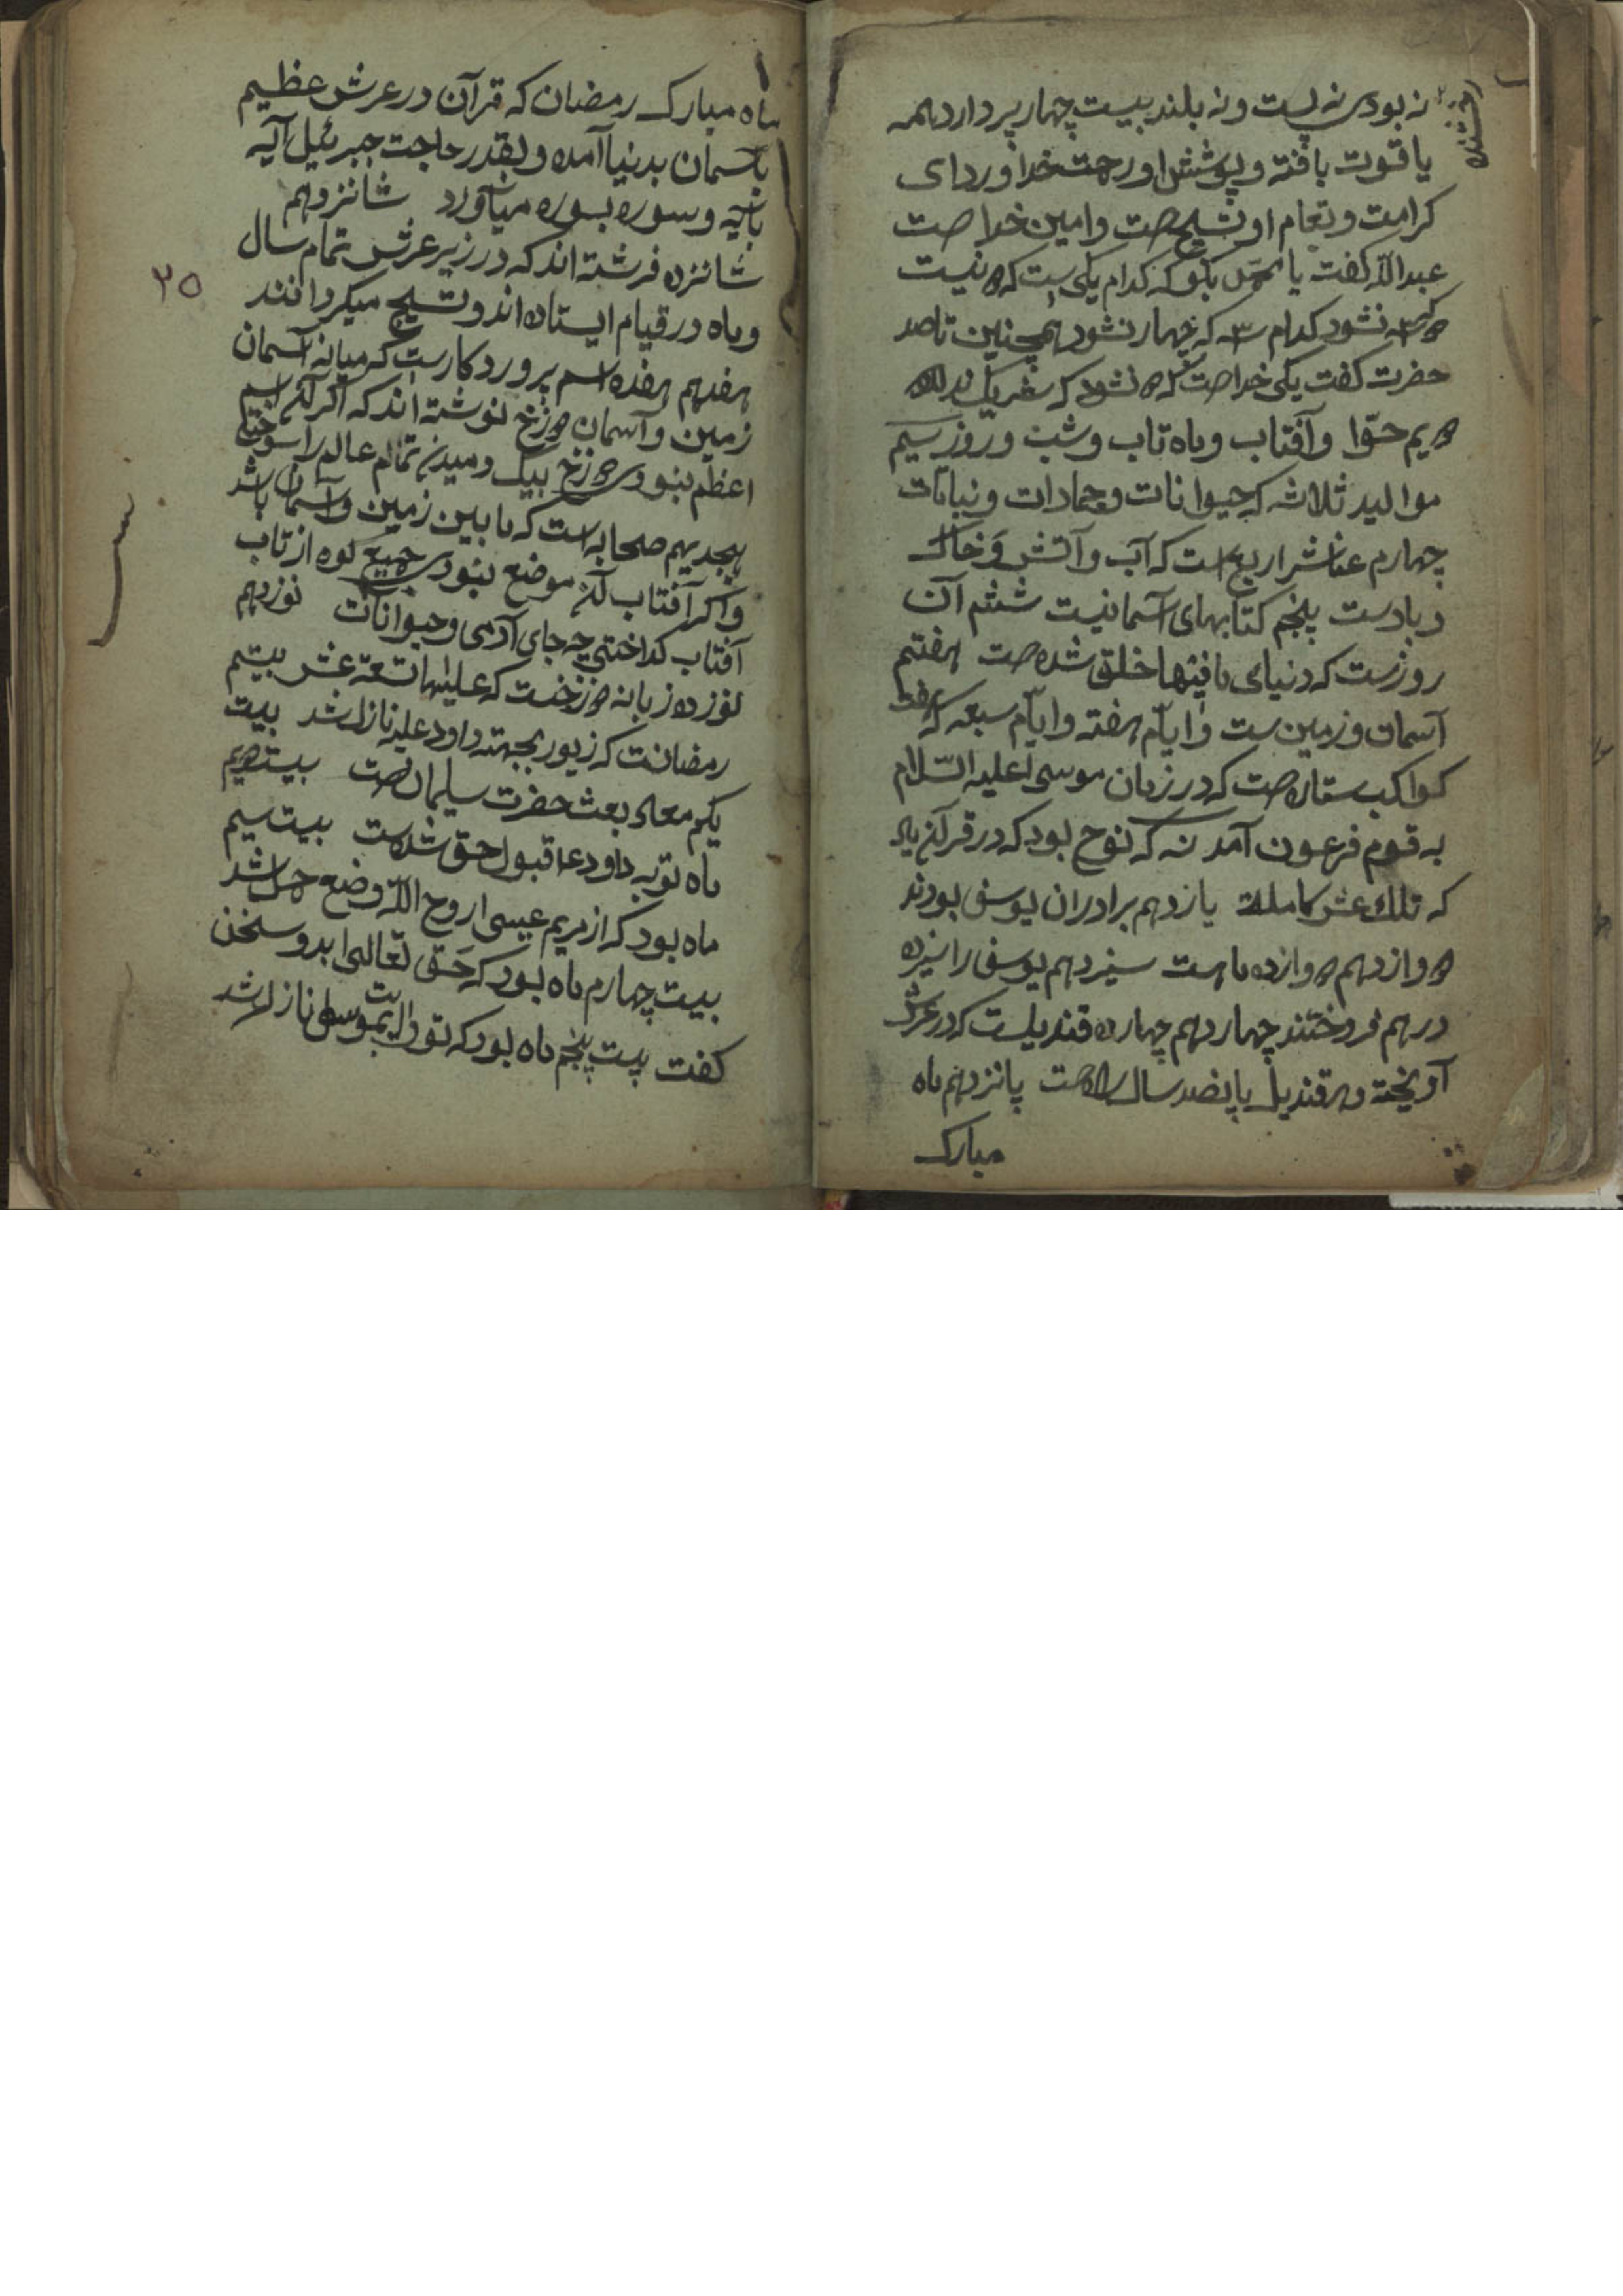 نه بودی نه پست و نه بلند بیست چهار پر دارد همه
یاقوت بافته و پوشش او رحمت خدا و ردای
کرامت و تعام او تسبیح است و امین خداست
عبدالله کفت یا محمد بکو که کدام یکی است که دو نیست
نشود کدام سه که چهار نشود همچنین تا صد
حضرت کفت یکی خداست که دو نشود که شریک ندارد
دویم حوّا و آفتاب و ماه تاب و شب و روز سیم
موالید ثلاثه که حیوانات و جمادات و نباتات
چهارم عناشر اربع است که آب و آتش و خاک
و بادست پنجم کتابهای آسمانیست ششم آن
روزست که دنیای مافیها خلق شده است هفتم
آسمان و زمین ست و ایام هفته و ایام سبعه که
کواکب ستاره است که در زمان موسی علیه السّلام
به قوم فرعون آمد نه که نوح بود که در قرآن
که تلك عشر کاملة یازدهم برادران یوسف بودند
دوازدهم دوازده ماهست سیزدهم یوسف را سیزده
درهم فروختند چهاردهم چهارده قندیلست که در عرش
آویخته و هر قندیل پانصد سال راهست پانزدهم ماه
مبارک
ماه مبارک رمضان که قرآن در عرش عظیم
باسمان بدنیا آمده و بقدر حاجت جبرئیل آیه
بایه و سوره بسوره میاورد شانزدهم
شانزده فرشته اند که در زیر عرش تمام سال
و ماه در قیام ایستاده اند و تسبیح میکردانند
۳۵
هفدهم هفده اسم پروردکارست که میانه آسمان
زمین و آسمان دوزخ نوشته اند که اکر آن اسم
اعظم نبودی دوزخ بیک دمیدن تمام عالم را سوختی
هجدیهم صحابه است که مابین زمین و آسمان باشد
و اکر آفتاب آن موضع نبودی جمیع کوه از تاب
آفتاب کداختی چه جای آدمی و حیوانات نوزدهم
نوزده زبانه دوزخست که علیها تسعة عشر بیستم
رمضانت که زبور بجهته داود علیه نازل شد بیت
یکم بعث حضرت سلیمان است بیست دویم
ماه توبه داود قبول حق شدست بیست سیم
ماه بود که از مریم عیسی روح الله وضع حمل شد
بیست چهارم ماه بود که حق تعالی ابدو سخن
کفت بیست پنجم ماه بود که توراایت بموسی نازل شد